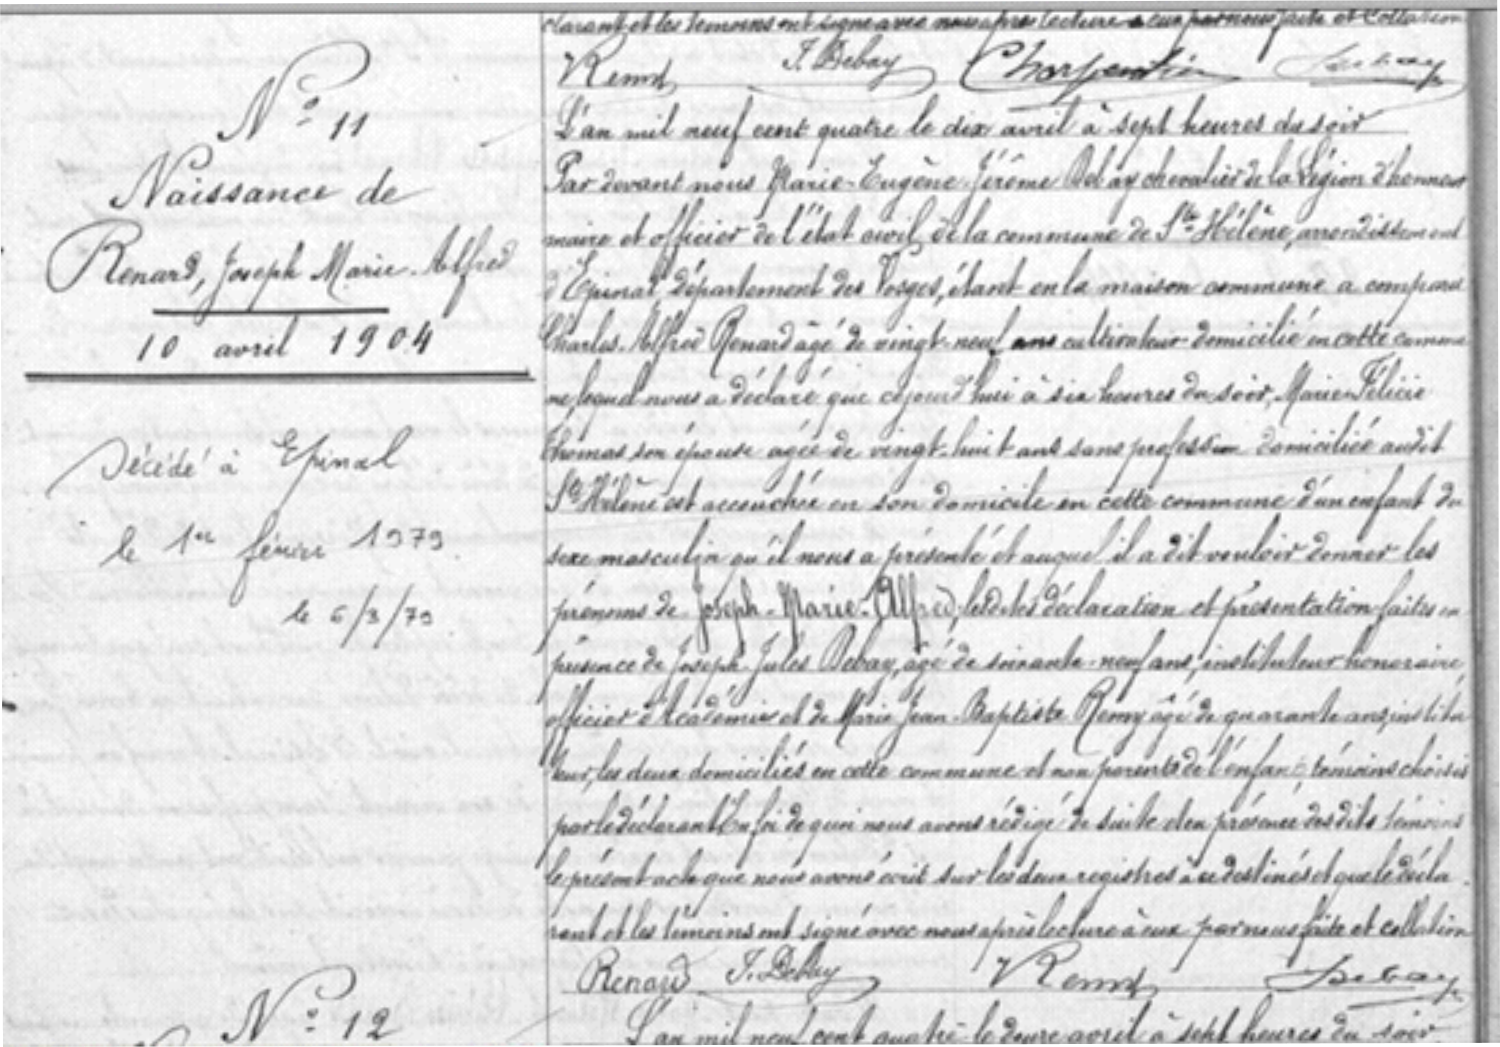 clarant et les témoins ont signé avec nous après lecture à eux par nous faite et collation
Remy J. Debay Charpentier Debay
N° 11
Naissance de
Renard, Joseph Marie Alfred
10 avril 1904
Décédé à Epinal
le 1er février 1979
le 6/3/79
L'an mil neuf cent quatre le dix avril à sept heures du soir
Par devant nous Marie-Eugène-Jérôme Debay chevalier de la Légion d'honneur
maire et officier de l'état civil de la commune de Ste Hélène, arrondissement
d'Epinal département des Vosges, étant en la maison commune a comparu
Charles-Alfred Renard agé de vingt-neuf ans cultivateur domicilié en cette commu
ne, lequel nous a déclaré que cejourd'hui à six heures du soir, Marie-Félicie
Thomas son épouse agée de vingt-huit ans sans profession domiciliée audit
Ste Hélène est accouchée en son domicile en cette commune d'un enfant du
sexe masculin qu'il nous a présenté et auquel il a dit vouloir donner les
prénoms de Joseph-Marie-Alfred, lesdites déclaration et présentation faites en
présence de Joseph-Jules Debay, agé de soixante-neuf ans, instituteur honoraire
officier d'Académie et de Marie Jean-Baptiste Remy âgé de quarante ans, institu
teur, les deux domiciliés en cette commune et non parents de l'enfant témoins choisis
par le déclarant En foi de quoi nous avons rédigé de suite et en présence des dits témoins
le présent acte que nous avons écrit sur les deux registres à ce destinés et que le décla
rant et les témoins ont signé avec nous après lecture à eux par nous faite et collation
Renard J. Debay Remy Debay
N° 12
L'an mil neuf cent quatre le douze avril à sept heures du soir